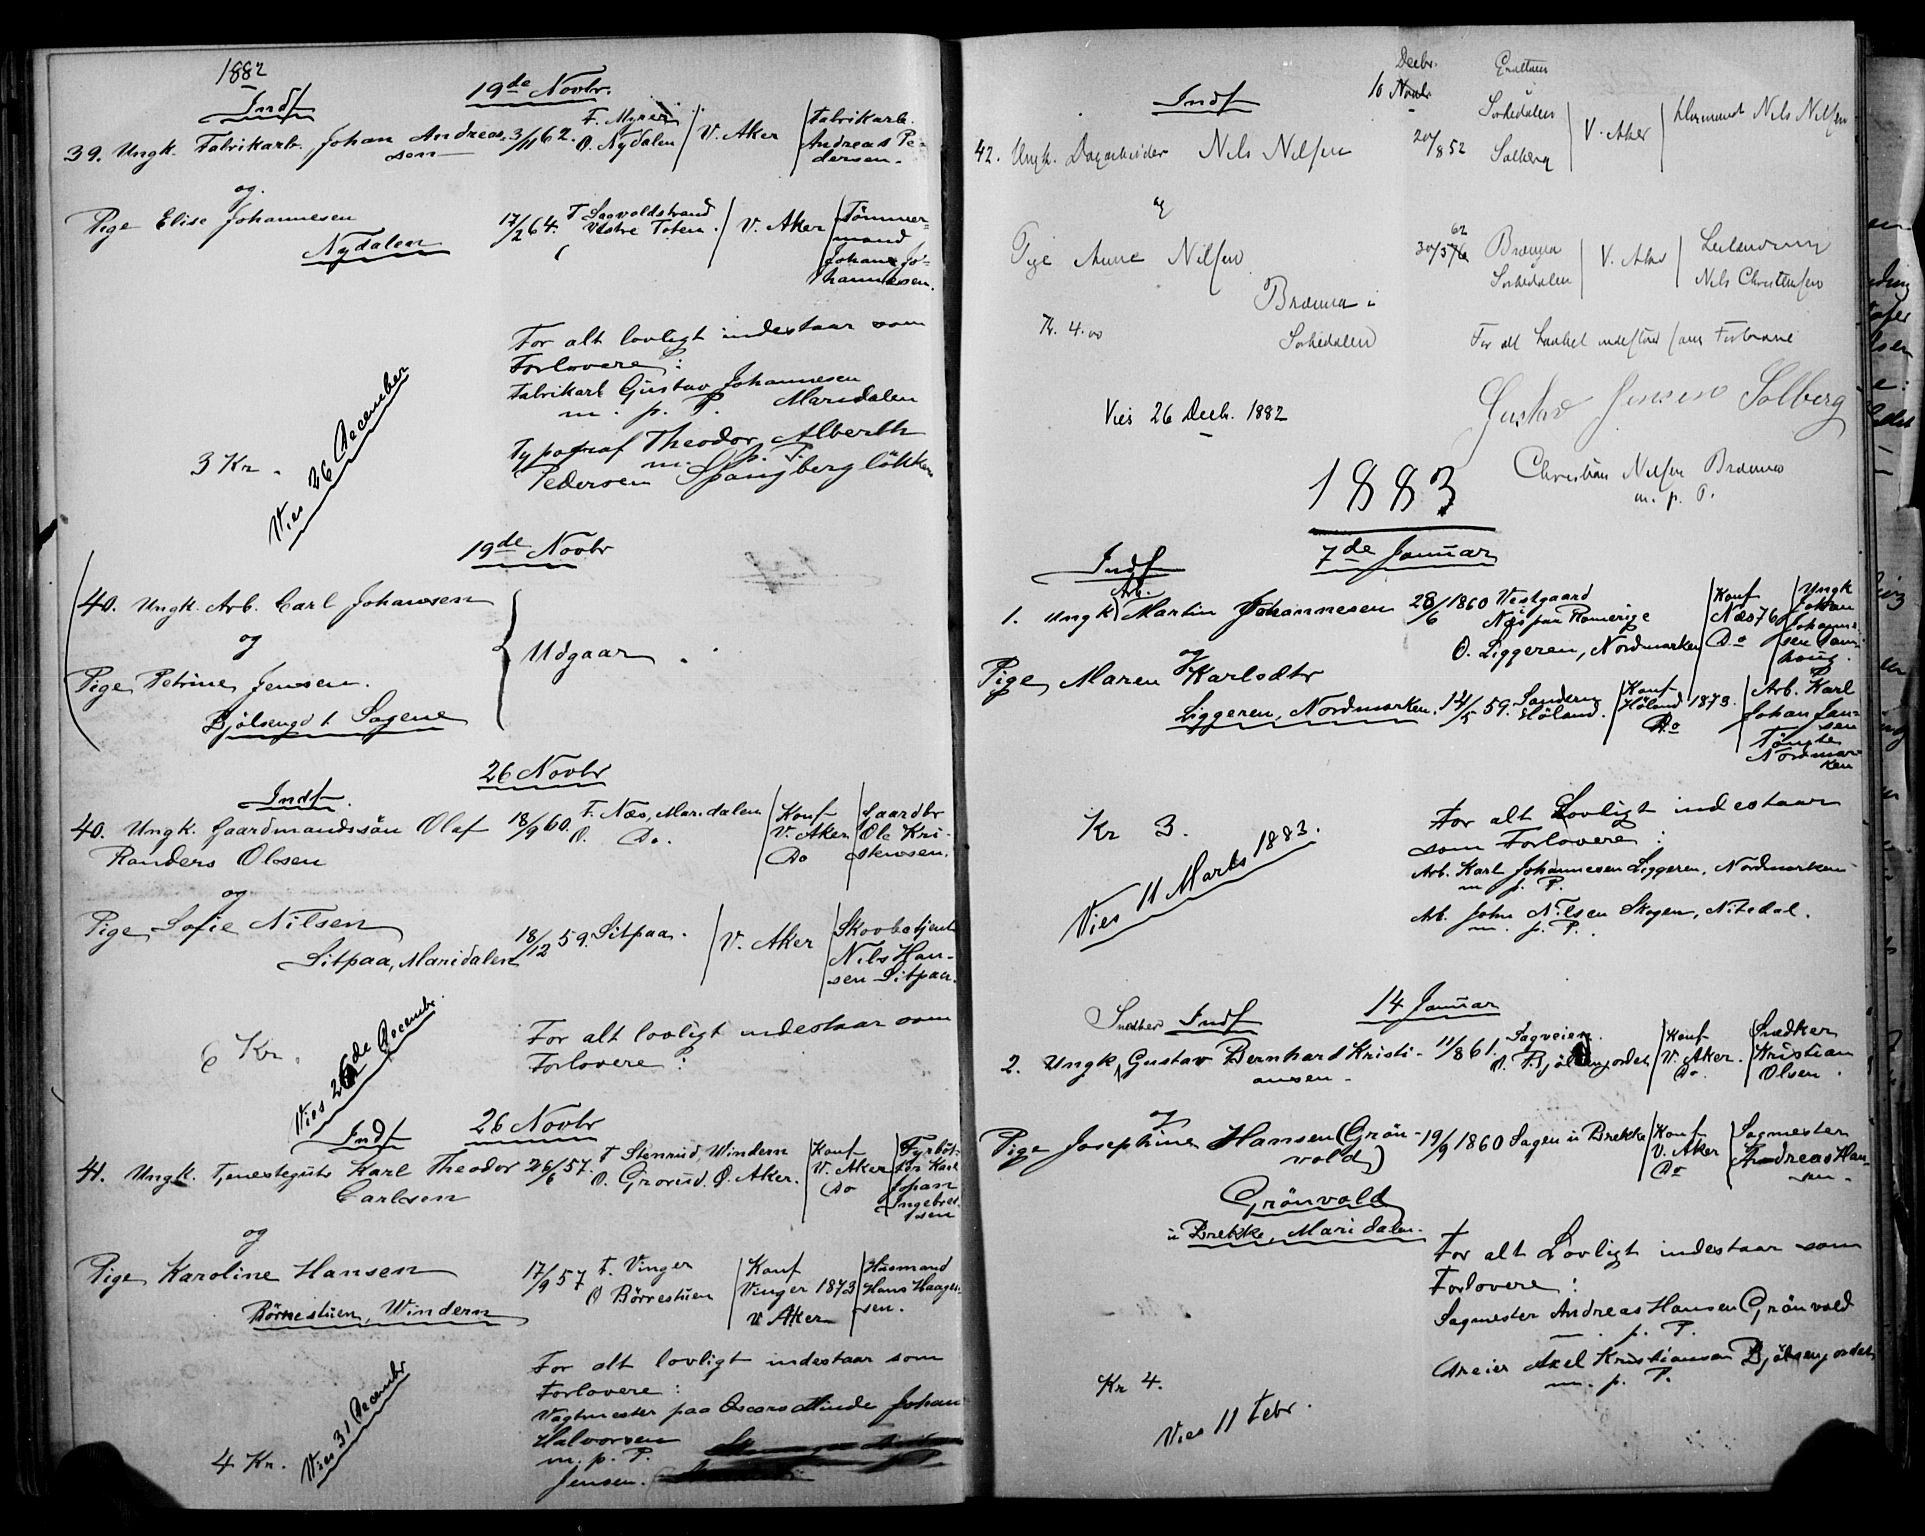 1882
Indf
19de Novbr.
39. Ungk. Fabrikarb. Johan Andreas- 3/11 62. F. Myrer V. Aker Fabrikarb.
sen O. Nydalen Andreas Pe-
dersen.
og
Pige Elise Johannesen 17/2 64. F Sagvoldstrand V. Aker Tömmer-
Nydalen Vestre Toten. mand
Johan Jo-
hannesen.
For alt lovligt indestaar som
Forlovere:
Fabrikarb Gustav Johannesen
m. p. P. Maridalen
Typograf Theodor Alberth
m. p. P.
Pedersen Spangberglökken
3 Kr.
Vies 26 December
19de Novbr
40. Ungk. Arb. Carl Johansen
og
Udgaar.
Pige Petrine Jensen.
Bjölsengd t. Sagene
26 Novbr
Indf.
40. Ungk. Gaardmandssön Olaf 18/9 60. F. Næs, Maridalen Konf Gaardbr
Randers Olsen O. Do. V. Aker Ole Kri-
Do stensen.
og
Pige Sofie Nilsen 18/12 59. Sitpaa. V. Aker Skovbetjent
Sitpaa, Maridalen Nils Han-
sen Sitpaa.
6 Kr.
Vies 26de Decembr.
For alt lovligt indestaar som
Forlovere:
Indf
26 Novbr
41. Ungk. Tjenestegut Karl Theodor 26/6 57. F Stenrud, Windern Konf Fyrböt-
Carlsen O. Grorud. Ö. Aker. V. Aker ter Karl
Do Johan
Ingebret-
sen
og
Pige Karoline Hansen 17/9 57 F. Vinger Konf Husmand
Börrestuen, Windern O Börrestuen Vinger 1873 Hans Haagen-
V Aker sen.
For alt lovligt indestaar som
Forlovere:
Vagtmester paa Oscars Minde Johan
Halvorsen
m. p. P.
Jensen.
4 Kr.
Vies 31 Decembr
Indf
Decbr.
10 Novbr
42. Ungk. Dagarbeider Nils Nilsen 20/8 52 Sörkedalen V. Aker Nils Nilsen
Solberg
og
Pige Anne Nilsen 30/3 62 Brænna V. Aker
Brænna i Sörkedalen Nils Christensen
Kr. 4.00 Sörkedalen
For alt som Forlovere
Vies 26 Decb. 1882
Gustav Jensen Solberg
Christian Nilsen Brænna
m. p. P.
1883
7de Januar
Indf
Arb.
1. Ungk Martin Johannesen 28/6 1860 Vestgaard Konf Ungk
Næs paa Romerige Næs 76 Johan
O. Liggeren, Nordmarken Do Johanne-
sen
og
Pige Maren Karlsdtr
Liggeren, Nordmarken. 14/5 59. Höland. Konf Höland 1873. Arb. Karl
Do Johan Jan-
sen
Nordmar-
ken
Kr 3.
Vies 11 Marts 1883.
For alt Lovligt indestaar
som Forlovere:
Arb. Karl Johannesen Liggeren, Nordmarken
m p. P.
Arb. John Nilsen Skogen, Nitedal.
m. p. P.
14 Januar
Snedker Indf
2. Ungk Gustav Bernhard Kristi- 11/8 61. Sagveien Konf Snedker
ansen O. Bjölsenjordet V. Aker. Kristian
Do. Olsen.
og
Pige Josephine Hansen (Grön- 19/9 1860 Sagen u Brekke Konf Sagmester
vold) V. Aker Andreas Han-
Do sen.
Grönvold
u Brekke, Maridalen.
For alt Lovligt indestaar som
Forlovere:
Sagmester Andreas Hansen Grönvold
m. p. P.
Dreier Axel Kristiansen Bjölsenjordet
m. p. P.
Kr 4.
Vies 11 Febr.